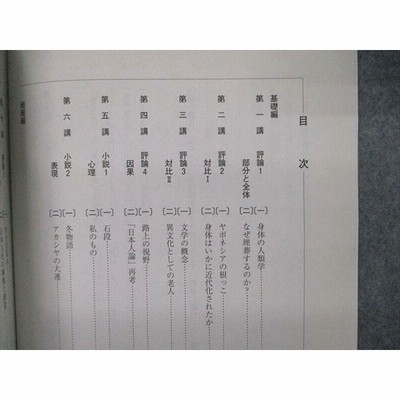 目次
基礎編
第一講 評論1 部分と全体
〔一〕身体の人類学
〔二〕なぜ埋葬するのか?
第二講 評論2 対比Ⅰ
〔一〕ヤポネシアの根っこ
〔二〕身体はいかに近代化されたか
第三講 評論3 対比Ⅱ
〔一〕文学の概念
〔二〕異文化としての老人
第四講 評論4 因果
〔一〕路上の視野
〔二〕「日本人論」再考
第五講 小説1 心理
〔一〕石段
〔二〕私のもの
第六講 小説2 表現
〔一〕冬物語
〔二〕アカシヤの大連